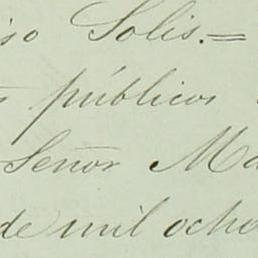 so Solis.=
públicos
Señor Ma
de mil ocho